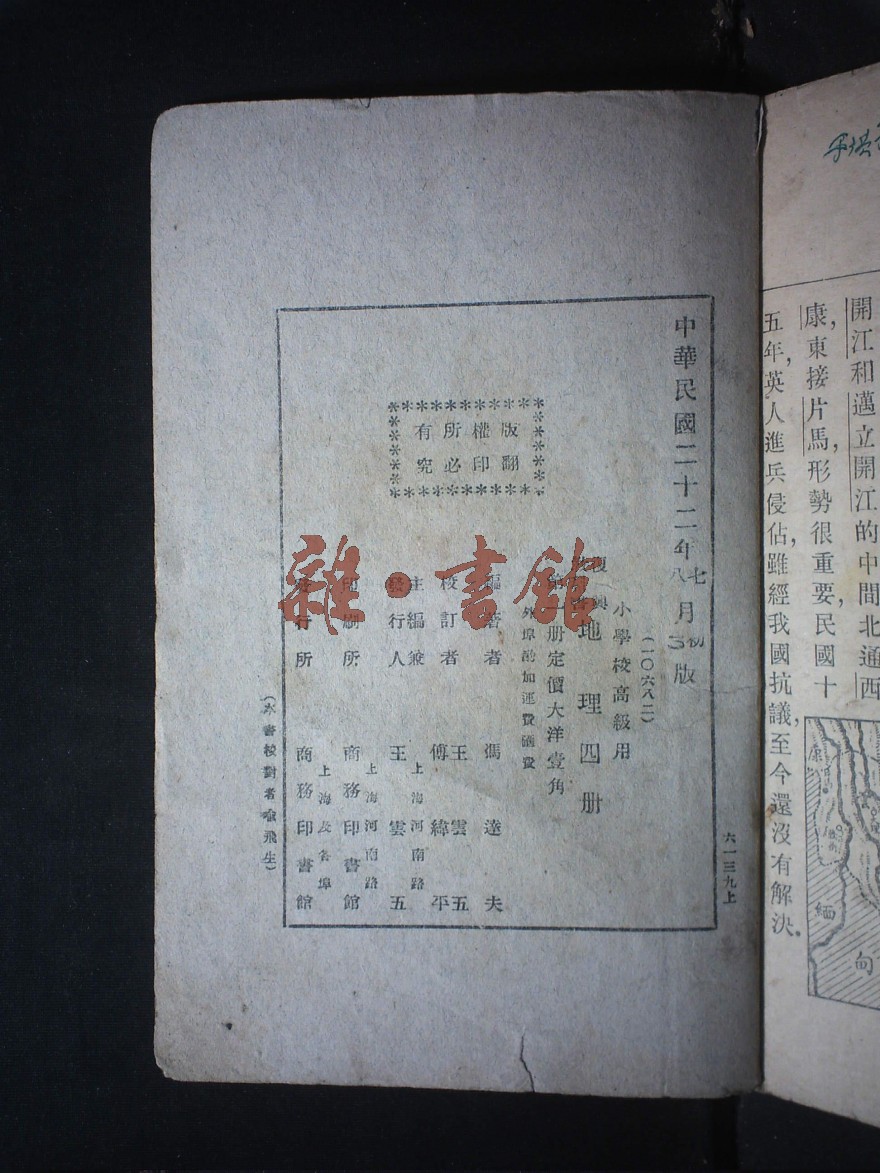 開江和邁立開江的中間北通西
康，東接片馬，形勢很重要，民國十
五年，英人進兵侵佔，雖經我國抗議，至今還沒有解決。
緬
甸
中華民國二十二年七月初版
八 3
六一三九上
(一〇六八二)
小學校高級用
復興
地理四册
第一册定價大洋壹角
外埠酌加運費匯費
版權所有
翻印必究
編著者 馮達夫
校訂者 王雲五
傅緯平
上海河南路
主編兼
發行人 王雲五
上海河南路
印刷所 商務印書館
上海及各埠
發行所 商務印書館
(本書校對者俞飛生)
雜·書館